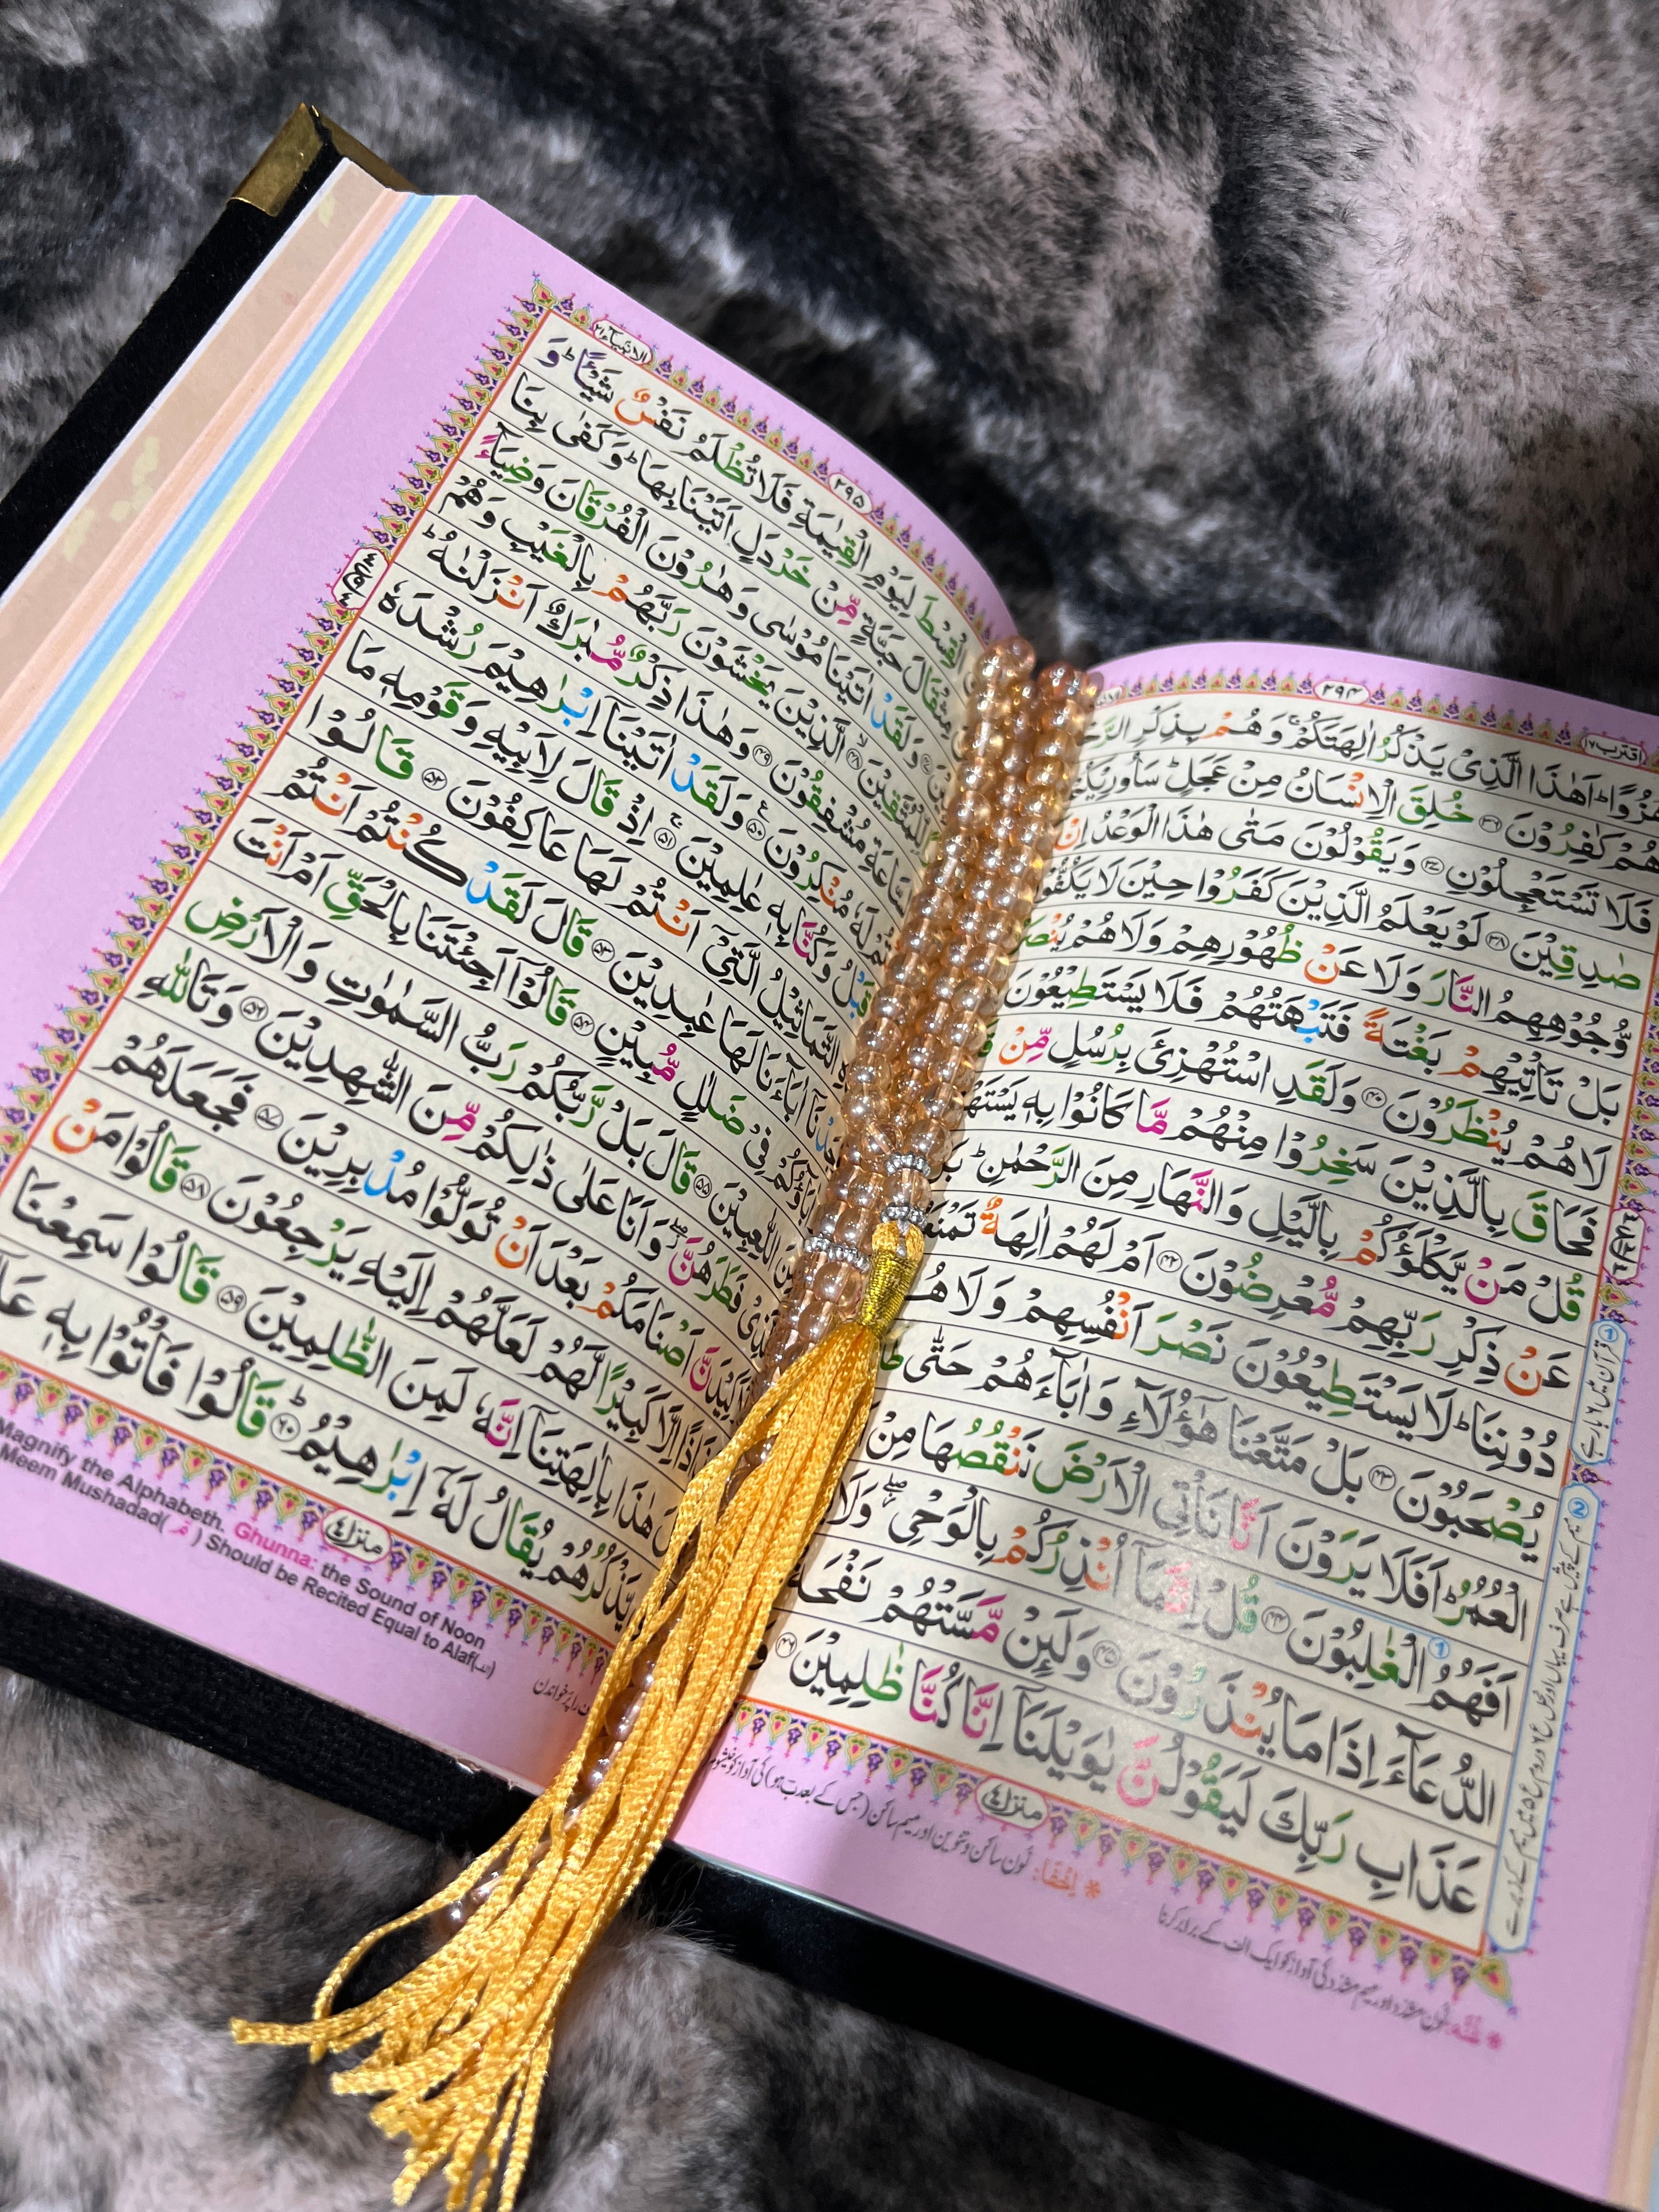 اقترب ١٧
٢٩٤
هُزُوًا ؕ اَهٰذَا الَّذِىْ يَذْكُرُ اٰلِهَتَكُمْ ۚ وَهُمْ بِذِكْرِ
هُمْ كٰفِرُوْنَ ﴿۳۶﴾ خُلِقَ الْاِنْسَانُ مِنْ عَجَلٍ ؕ سَاُورِيْكُمْ
فَلَا تَسْتَعْجِلُوْنِ ﴿۳۷﴾ وَيَقُوْلُوْنَ مَتٰى هٰذَا الْوَعْدُ اِنْ
صٰدِقِيْنَ ﴿۳۸﴾ لَوْ يَعْلَمُ الَّذِيْنَ كَفَرُوْا حِيْنَ لَا يَكُفُّوْنَ
وُّجُوْهِهِمُ النَّارَ وَلَا عَنْ ظُهُوْرِهِمْ وَلَا هُمْ
بَلْ تَاْتِيْهِمْ بَغْتَةً فَتَبْهَتُهُمْ فَلَا يَسْتَطِيْعُوْنَ
لَا هُمْ يُنْظَرُوْنَ ﴿۴۰﴾ وَلَقَدِ اسْتُهْزِئَ بِرُسُلٍ مِّنْ
فَحَاقَ بِالَّذِيْنَ سَخِرُوْا مِنْهُمْ مَّا كَانُوْا بِهٖ
قُلْ مَنْ يَّكْلَؤُكُمْ بِالَّيْلِ وَالنَّهَارِ مِنَ الرَّحْمٰنِ ؕ
عَنْ ذِكْرِ رَبِّهِمْ مُّعْرِضُوْنَ ﴿۴۲﴾ اَمْ لَهُمْ اٰلِهَةٌ
دُوْنِنَا ؕ لَا يَسْتَطِيْعُوْنَ نَصْرَ اَنْفُسِهِمْ وَلَا
يُصْحَبُوْنَ ﴿۴۳﴾ بَلْ مَتَّعْنَا هٰٓؤُلَآءِ وَاٰبَآءَهُمْ حَتّٰى
الْعُمُرُ ؕ اَفَلَا يَرَوْنَ اَنَّا نَاْتِى الْاَرْضَ نَنْقُصُهَا مِنْ
اَفَهُمُ الْغٰلِبُوْنَ ﴿۴۴﴾ قُلْ اِنَّمَآ اُنْذِرُكُمْ بِالْوَحْىِ ۖ وَلَا
الدُّعَآءَ اِذَا مَا يُنْذَرُوْنَ ﴿۴۵﴾ وَلَئِنْ مَّسَّتْهُمْ نَفْحَةٌ
عَذَابِ رَبِّكَ لَيَقُوْلُنَّ يٰوَيْلَنَآ اِنَّا كُنَّا ظٰلِمِيْنَ ﴿۴۶﴾
منزل ٤
* اِخفَا: نُون ساکن وتنوین اور میم ساکن (جس کے بعد ب ہو) کی آواز کو
* غُنَّہ: نُون مشدّد اور میم مشدّد کی آواز کو ایک الف کے برابر کرنا
الانبیآء ٢١
٢٩٥
الْقِسْطَ لِيَوْمِ الْقِيٰمَةِ فَلَا تُظْلَمُ نَفْسٌ شَيْـًٔا ؕ وَ
مِثْقَالَ حَبَّةٍ مِّنْ خَرْدَلٍ اَتَيْنَا بِهَا ؕ وَكَفٰى بِنَا
وَلَقَدْ اٰتَيْنَا مُوْسٰى وَهٰرُوْنَ الْفُرْقَانَ وَضِيَآءً
لِّلْمُتَّقِيْنَ ﴿۴۸﴾ الَّذِيْنَ يَخْشَوْنَ رَبَّهُمْ بِالْغَيْبِ وَهُمْ
السَّاعَةِ مُشْفِقُوْنَ ﴿۴۹﴾ وَهٰذَا ذِكْرٌ مُّبٰرَكٌ اَنْزَلْنٰهُ ؕ
لَهٗ مُنْكِرُوْنَ ﴿۵۰﴾ وَلَقَدْ اٰتَيْنَآ اِبْرٰهِيْمَ رُشْدَهٗ
قَبْلُ وَكُنَّا بِهٖ عٰلِمِيْنَ ﴿۵۱﴾ اِذْ قَالَ لِاَبِيْهِ وَقَوْمِهٖ مَا
التَّمَاثِيْلُ الَّتِىْٓ اَنْتُمْ لَهَا عَاكِفُوْنَ ﴿۵۲﴾ قَالُوْا
اٰبَآءَنَا لَهَا عٰبِدِيْنَ ﴿۵۳﴾ قَالَ لَقَدْ كُنْتُمْ اَنْتُمْ
فِىْ ضَلٰلٍ مُّبِيْنٍ ﴿۵۴﴾ قَالُوْٓا اَجِئْتَنَا بِالْحَقِّ اَمْ اَنْتَ
اللّٰعِبِيْنَ ﴿۵۵﴾ قَالَ بَلْ رَّبُّكُمْ رَبُّ السَّمٰوٰتِ وَالْاَرْضِ
فَطَرَهُنَّ ۖ وَاَنَا عَلٰى ذٰلِكُمْ مِّنَ الشّٰهِدِيْنَ ﴿۵۶﴾ وَتَاللّٰهِ
لَاَكِيْدَنَّ اَصْنَامَكُمْ بَعْدَ اَنْ تُوَلُّوْا مُدْبِرِيْنَ ﴿۵۷﴾ فَجَعَلَهُمْ
جُذٰذًا اِلَّا كَبِيْرًا لَّهُمْ لَعَلَّهُمْ اِلَيْهِ يَرْجِعُوْنَ ﴿۵۸﴾ قَالُوْا مَنْ
هٰذَا بِاٰلِهَتِنَآ اِنَّهٗ لَمِنَ الظّٰلِمِيْنَ ﴿۵۹﴾ قَالُوْا سَمِعْنَا
يَّذْكُرُهُمْ يُقَالُ لَهٗٓ اِبْرٰهِيْمُ ؕ ﴿۶۰﴾ قَالُوْا فَاْتُوْا بِهٖ
منزل ٤
Magnify the Alphabeth. Ghunna: the Sound of Noon
Meem Mushadad( مّ ) Should be Recited Equal to Alaf(اَلف)